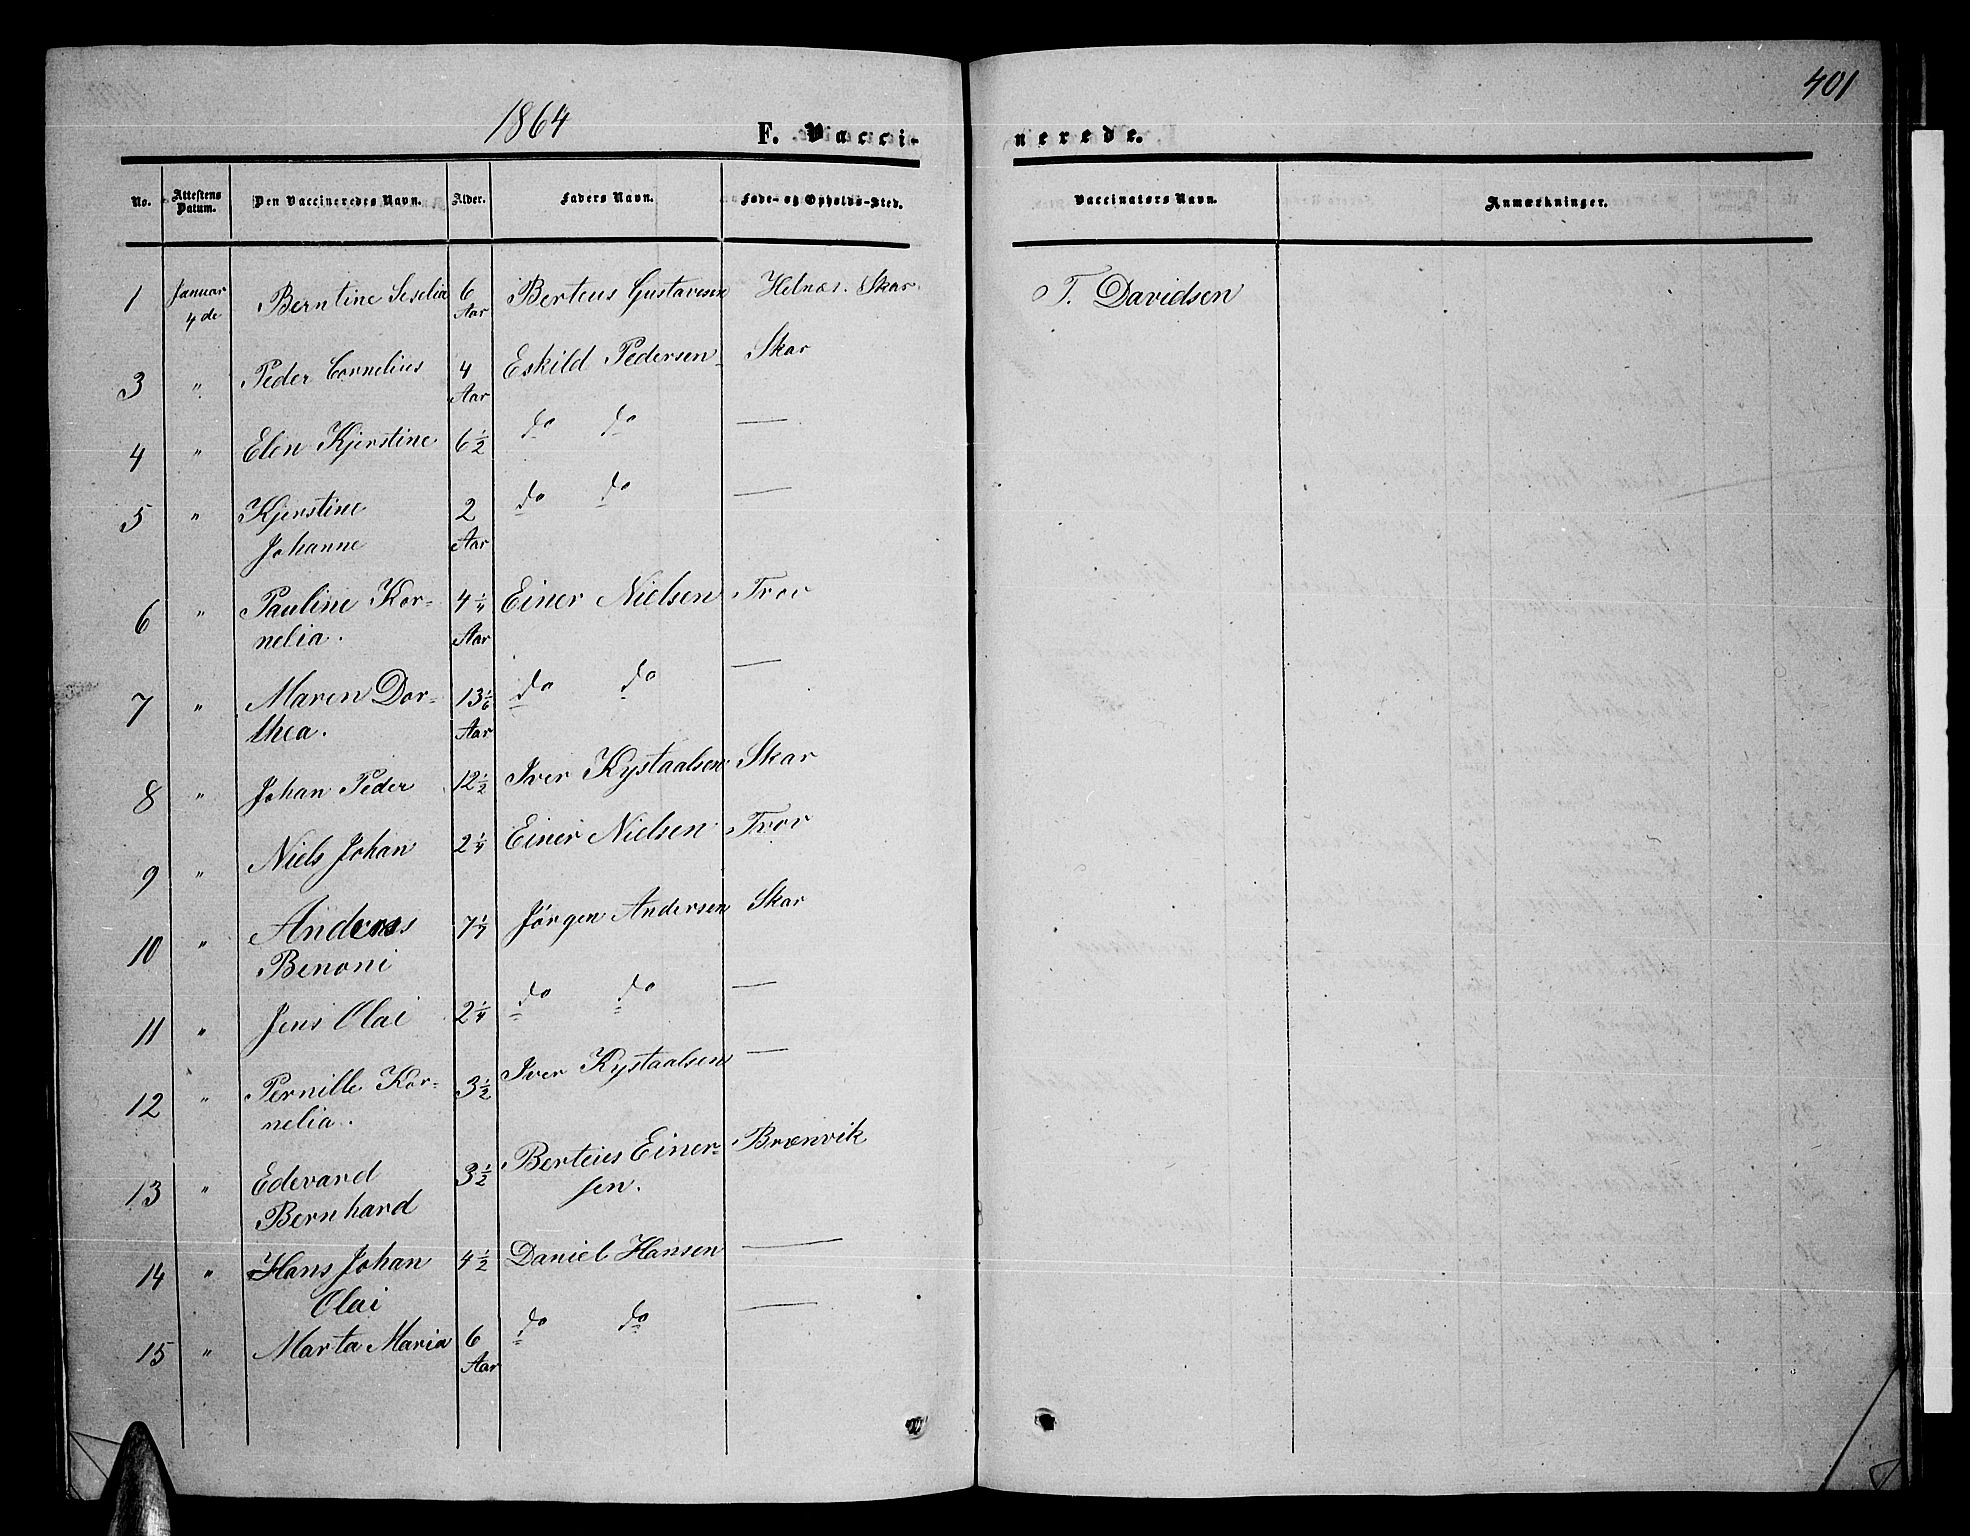 401
1864
F. Vacci- nerede.
No. Attestens Datum. Den Vaccineredes Navn. Alder. Faders Navn. Føde- og Opholds-Sted. Vaccinatørs Navn. Anmærkninger.
1 Januar 4de Berntine Seselia 6 Aar Berteus Gustavsen Helnæs. Skar T. Davidsen
3 " Peder Cornelius 4 Aar Eskild Pedersen Skar
4 " Elen Kjerstine 6 1/2 do do —
5 " Kjerstine Johanne 2 Aar do do —
6 " Pauline Kor=
nelia. 4 1/4 Aar Einer Nielsen Trov
7 " Maren Dor=
thea. 13 1/6 Aar do do —
8 " Johan Peder 12 1/2 Iver Kystaalsen Skar
9 " Niels Johan 2 1/4 Einer Nielsen Trov
10 " Anders Benoni 7 1/4 Jørgen Andersen Skar
11 " Jens Olai 2 1/4 do do —
12 " Pernille Kor=
nelia. 3 1/2 Iver Kystaalsen —
13 " Edevard Bernhard 3 1/2 Berteus Einer=
sen. Brænvik
14 " Hans Johan Olai 4 1/2 Daniel Hansen —
15 " Marta Maria 6 Aar do do —